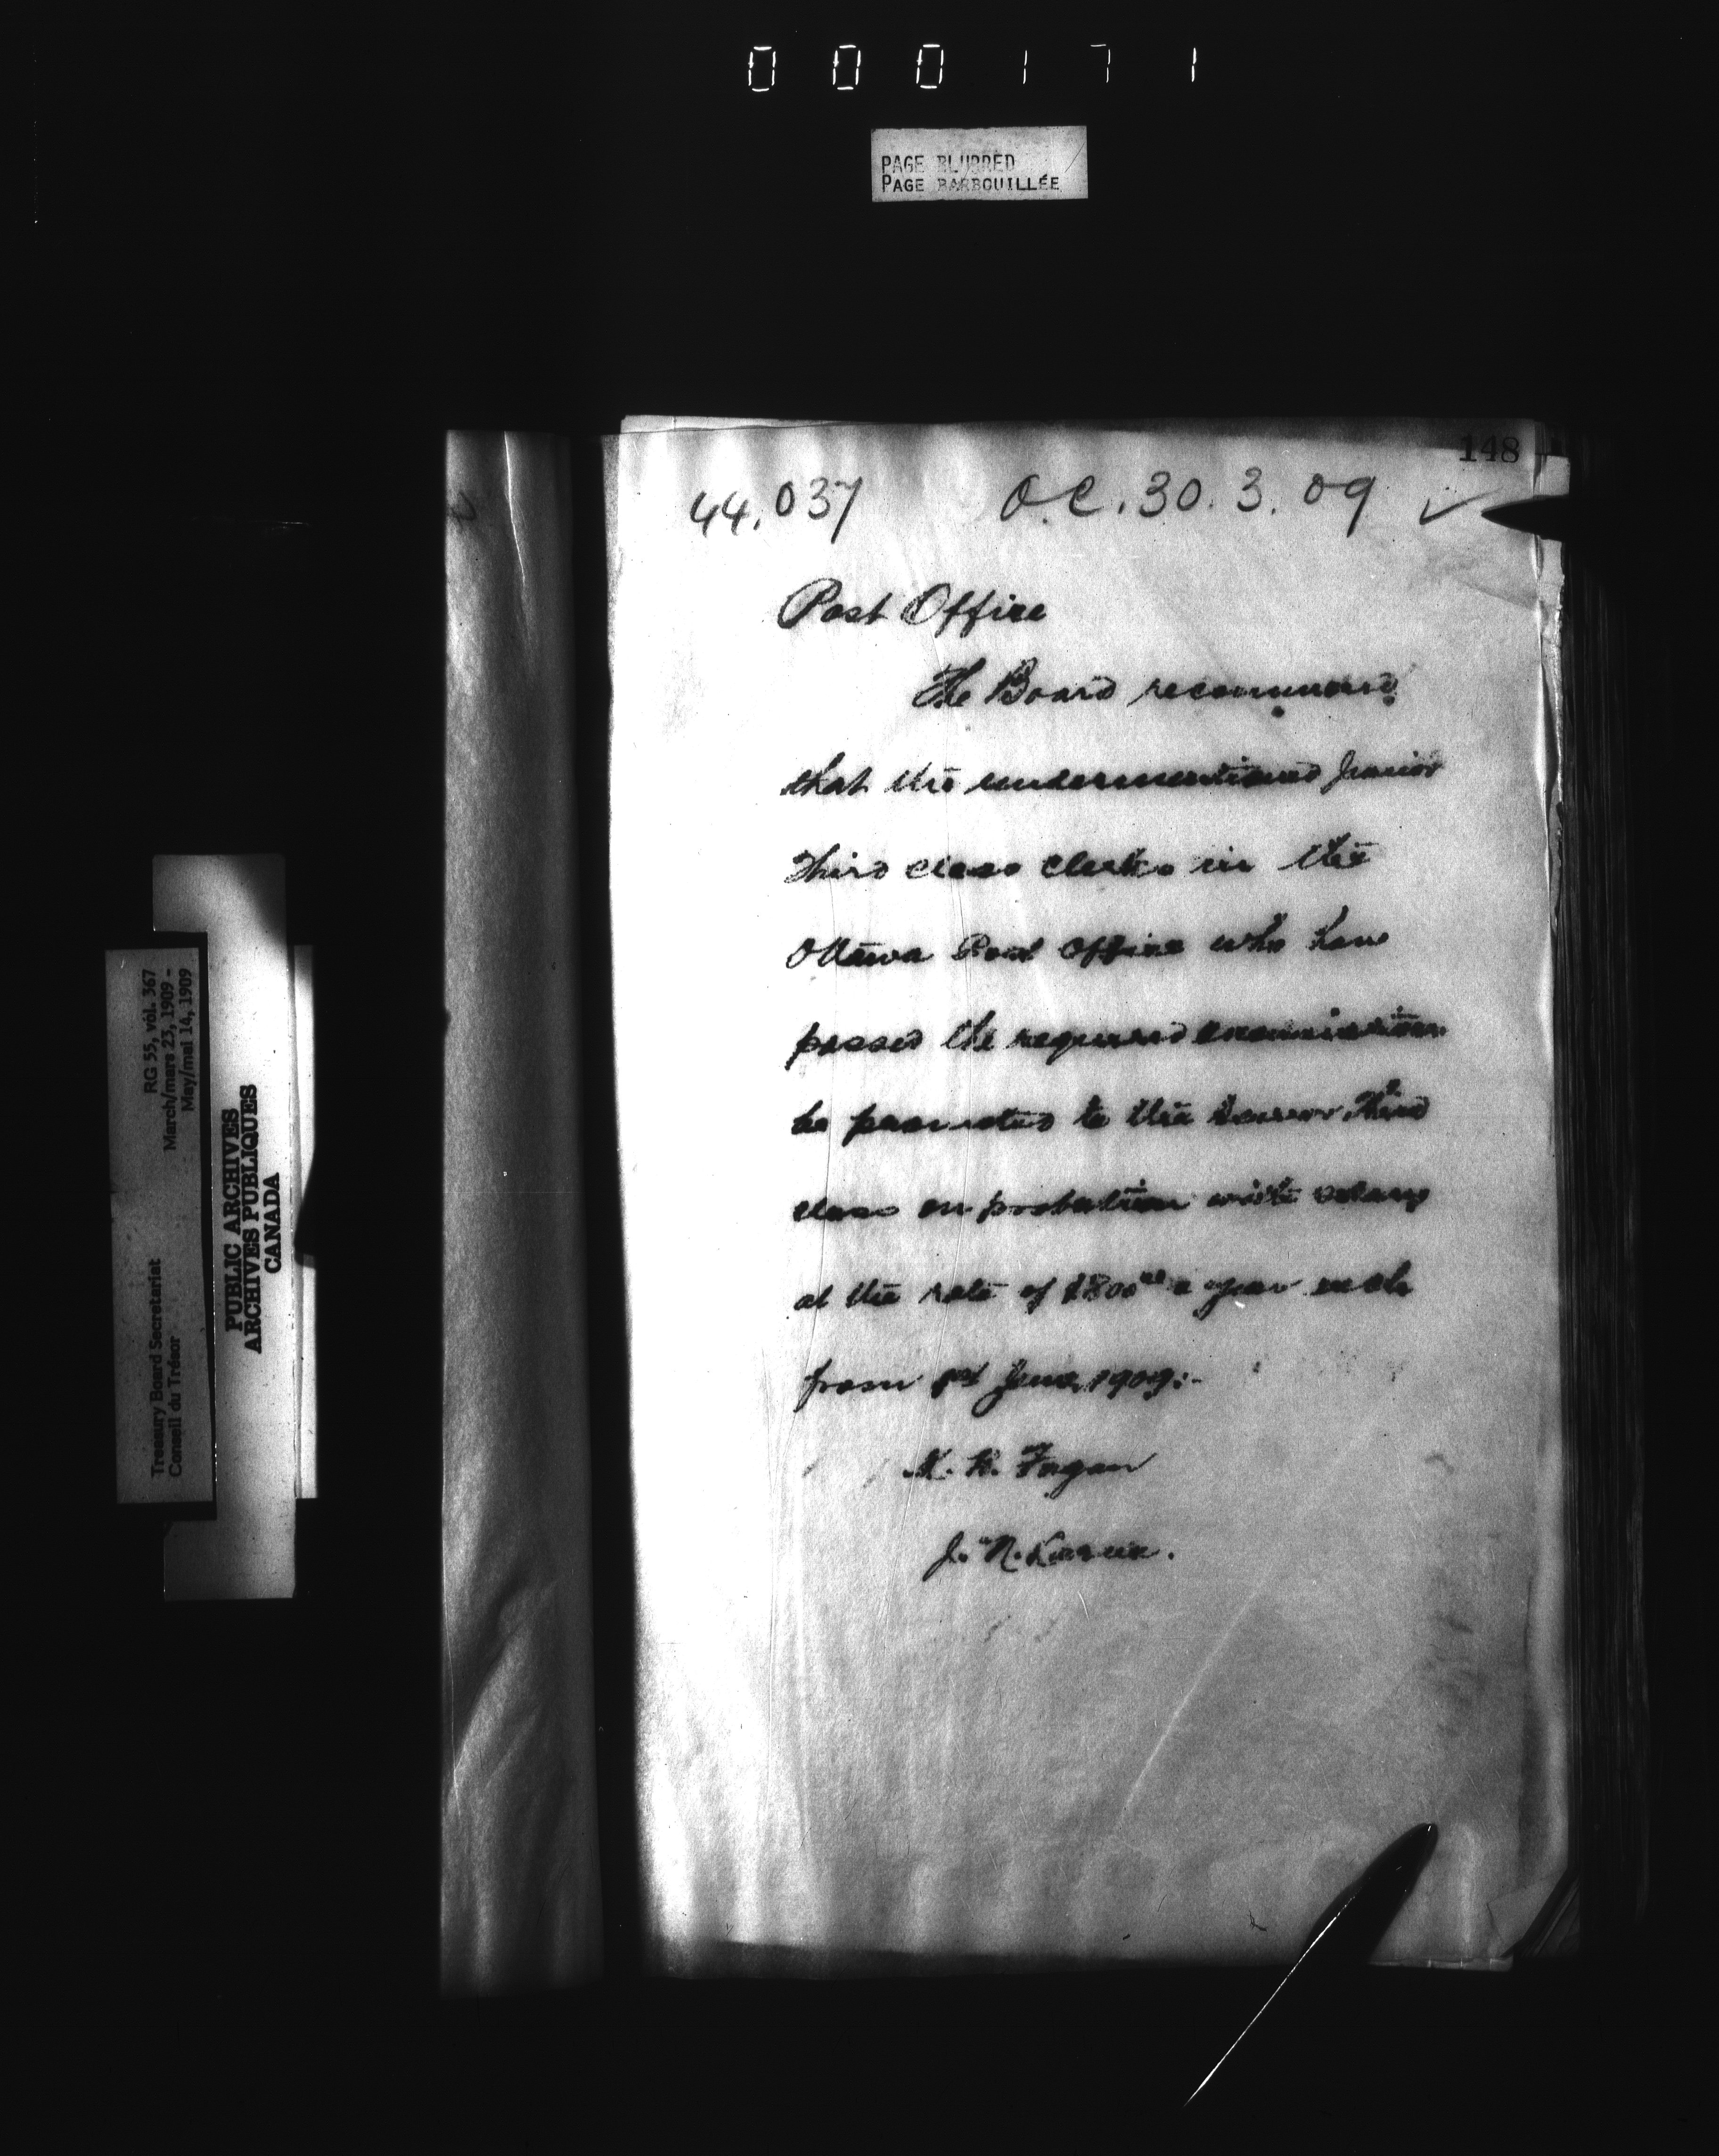 000171
PAGE BLURRED
PAGE BARBOUILLÉE
148
44.037 O.C. 30.3.09 ✓
Post Office
The Board recommend
that the undermentioned Junior
Third class clerks in the
Ottawa Post Office who have
passed the required examination
be promoted to the Senior Third
class on probation with salary
at the rate of $800.00 a year each
from 1st June, 1909:-
Fagan
J. N. Larue.
Treasury Board Secretariat
Conseil du Trésor
RG 55, vol. 367
March/mars 23, 1909 -
May/mai 14, 1909
PUBLIC ARCHIVES
ARCHIVES PUBLIQUES
CANADA